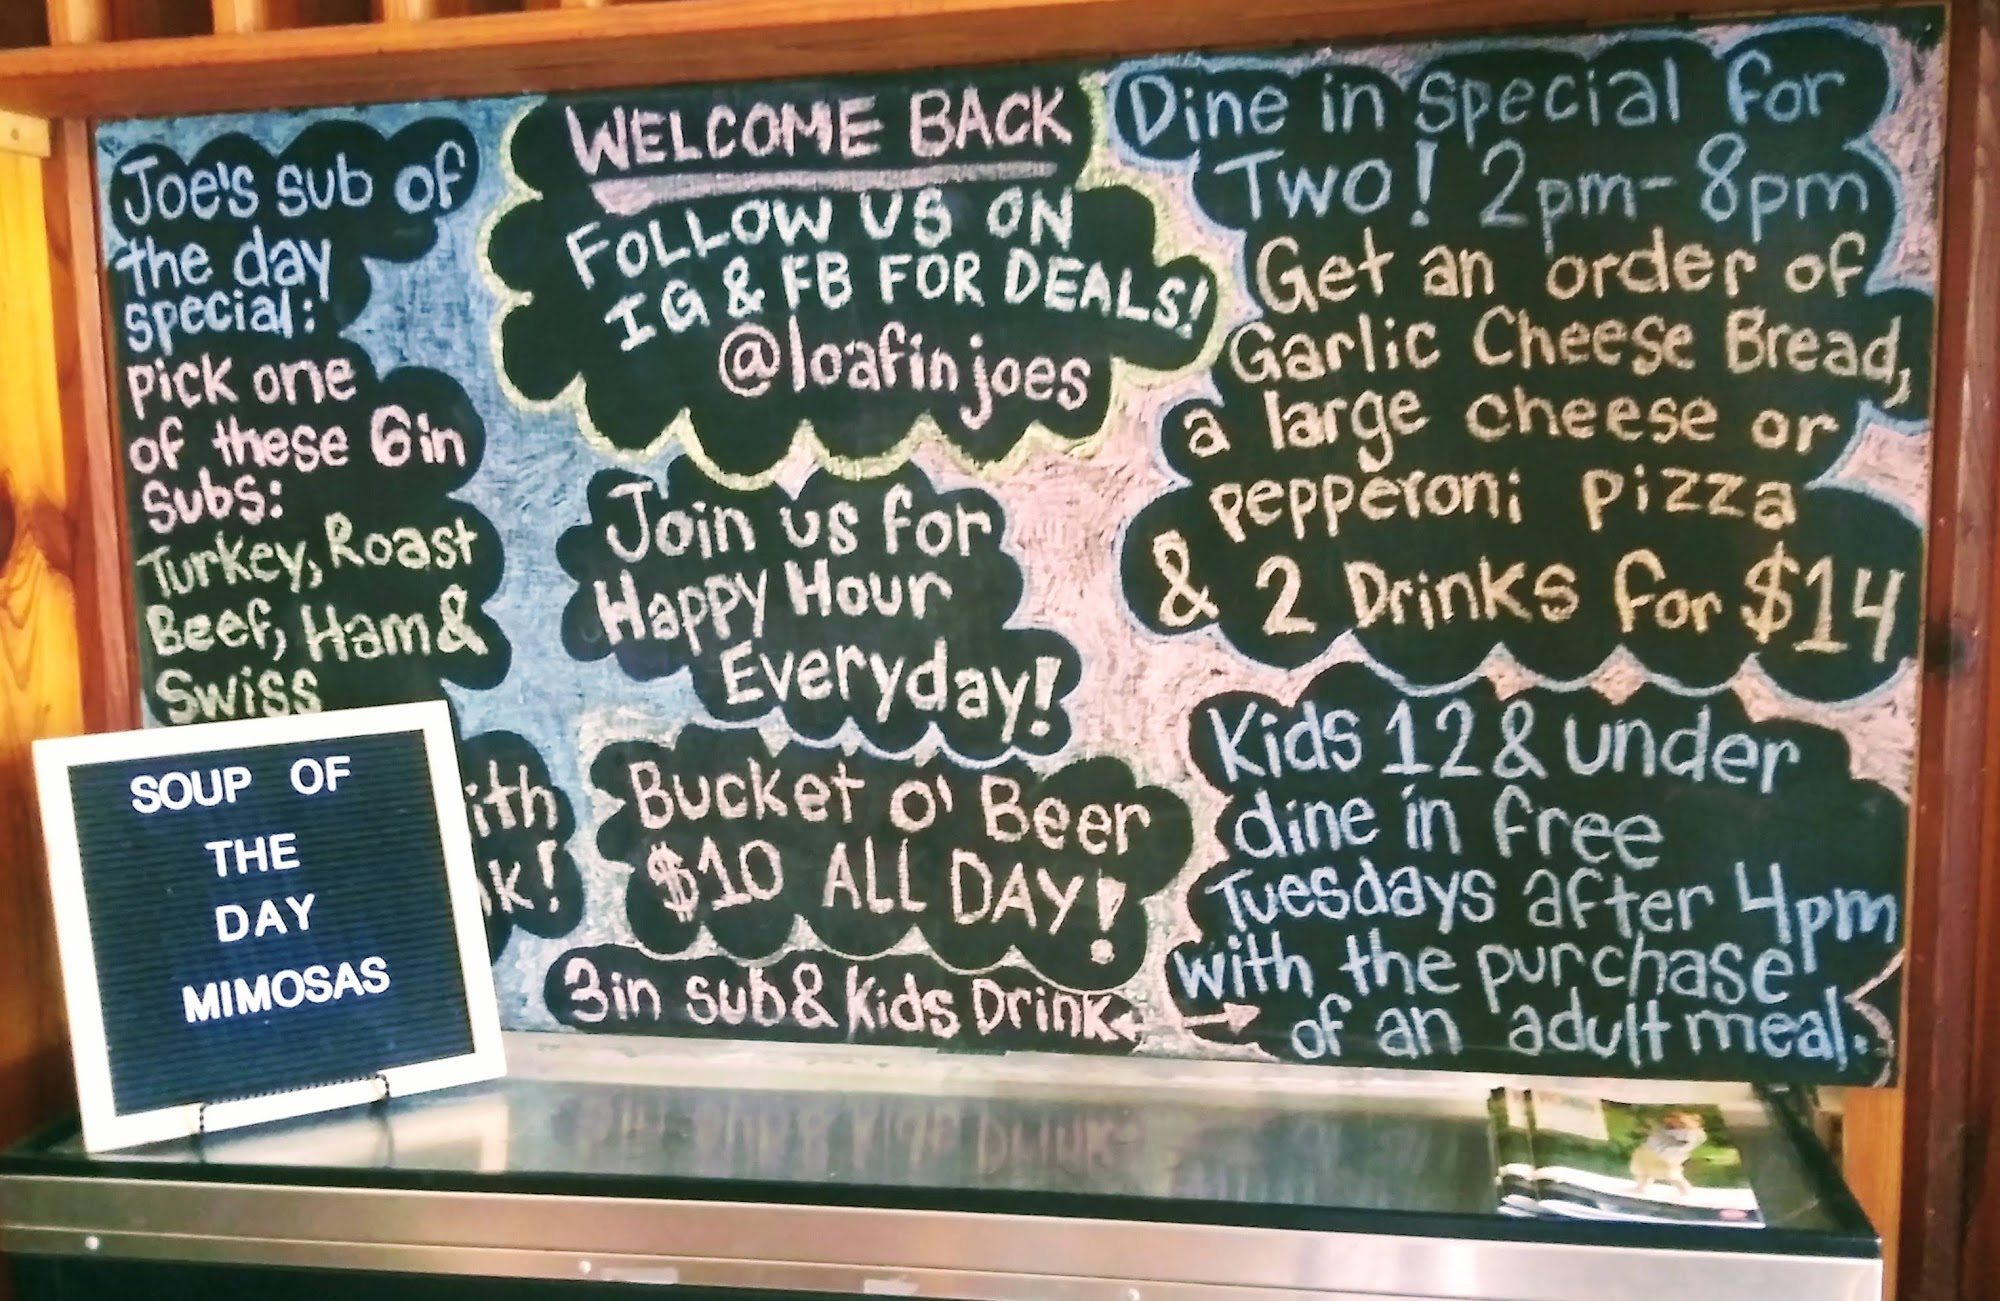 Joe's sub of
the day
special:
pick one
of these 6in
subs:
Turkey, Roast
Beef, Ham &
Swiss
WELCOME BACK
FOLLOW US ON
IG & FB FOR DEALS!
@loafinjoes
Join us for
Happy Hour
Everyday!
Bucket o' Beer
$10 ALL DAY!
3in sub & kids Drink
Dine in special for
Two! 2pm-8pm
Get an order of
Garlic Cheese Bread,
a large cheese or
pepperoni pizza
& 2 Drinks for $14
Kids 12 & under
dine in free
Tuesdays after 4pm
with the purchase
of an adult meal.
SOUP OF
THE
DAY
MIMOSAS